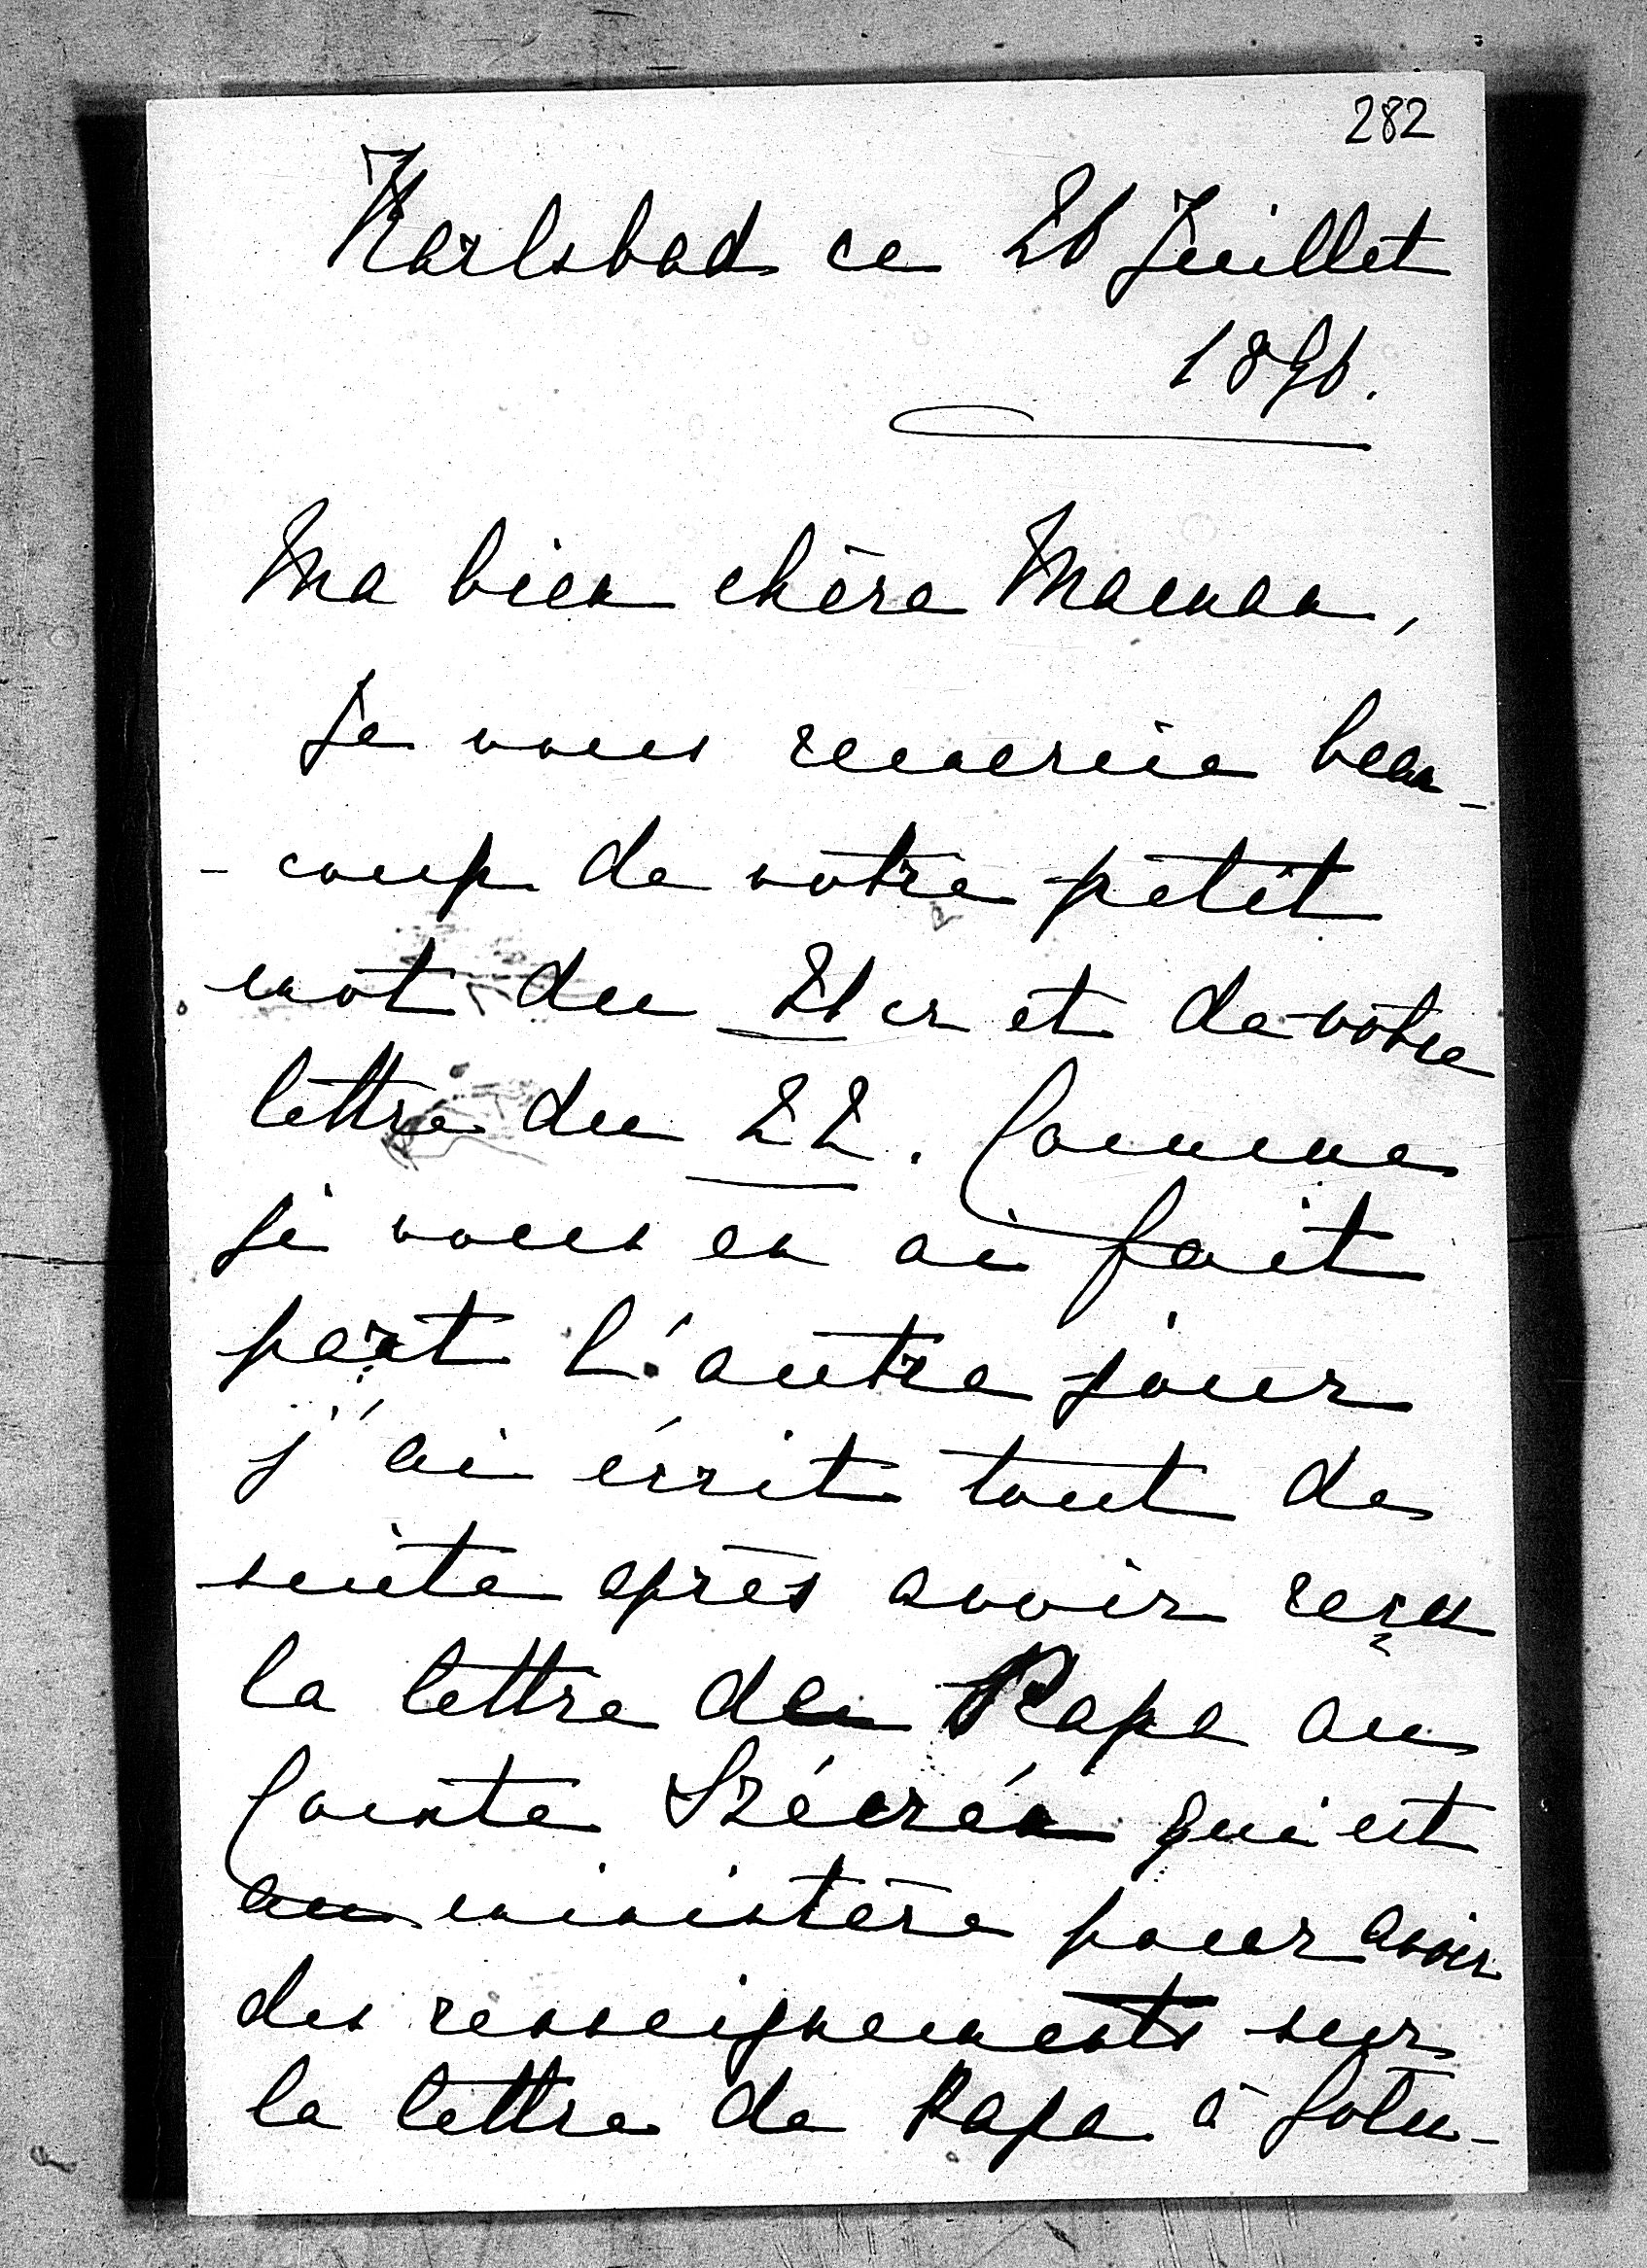 282
Karlsbad ce 26 Juillet
1896.
Ma bien chère Maman,
Je vous remercie beau-
-coup de votre petit
mot du 21 cr et de votre
lettre du 22. Comme
je vous en ai fait
part l'autre jour
j'ai écrit tout de
suite après avoir reçu
la lettre de Papa au
Comte Szécsén qui est
au ministère pour avoir
des renseignements sur
la lettre de Papa à